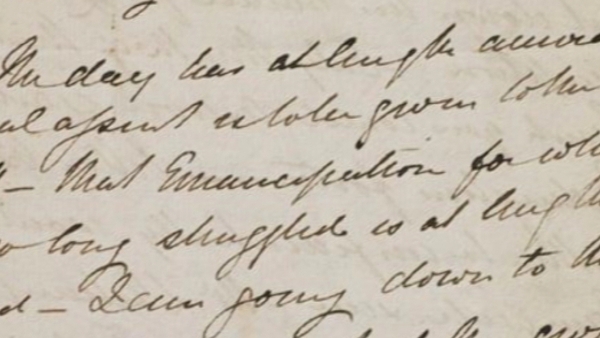 The day has at length arriv
al assent is to be given to the
" – that Emancipation for wh
o long struggled is at length
d – I am going down to th